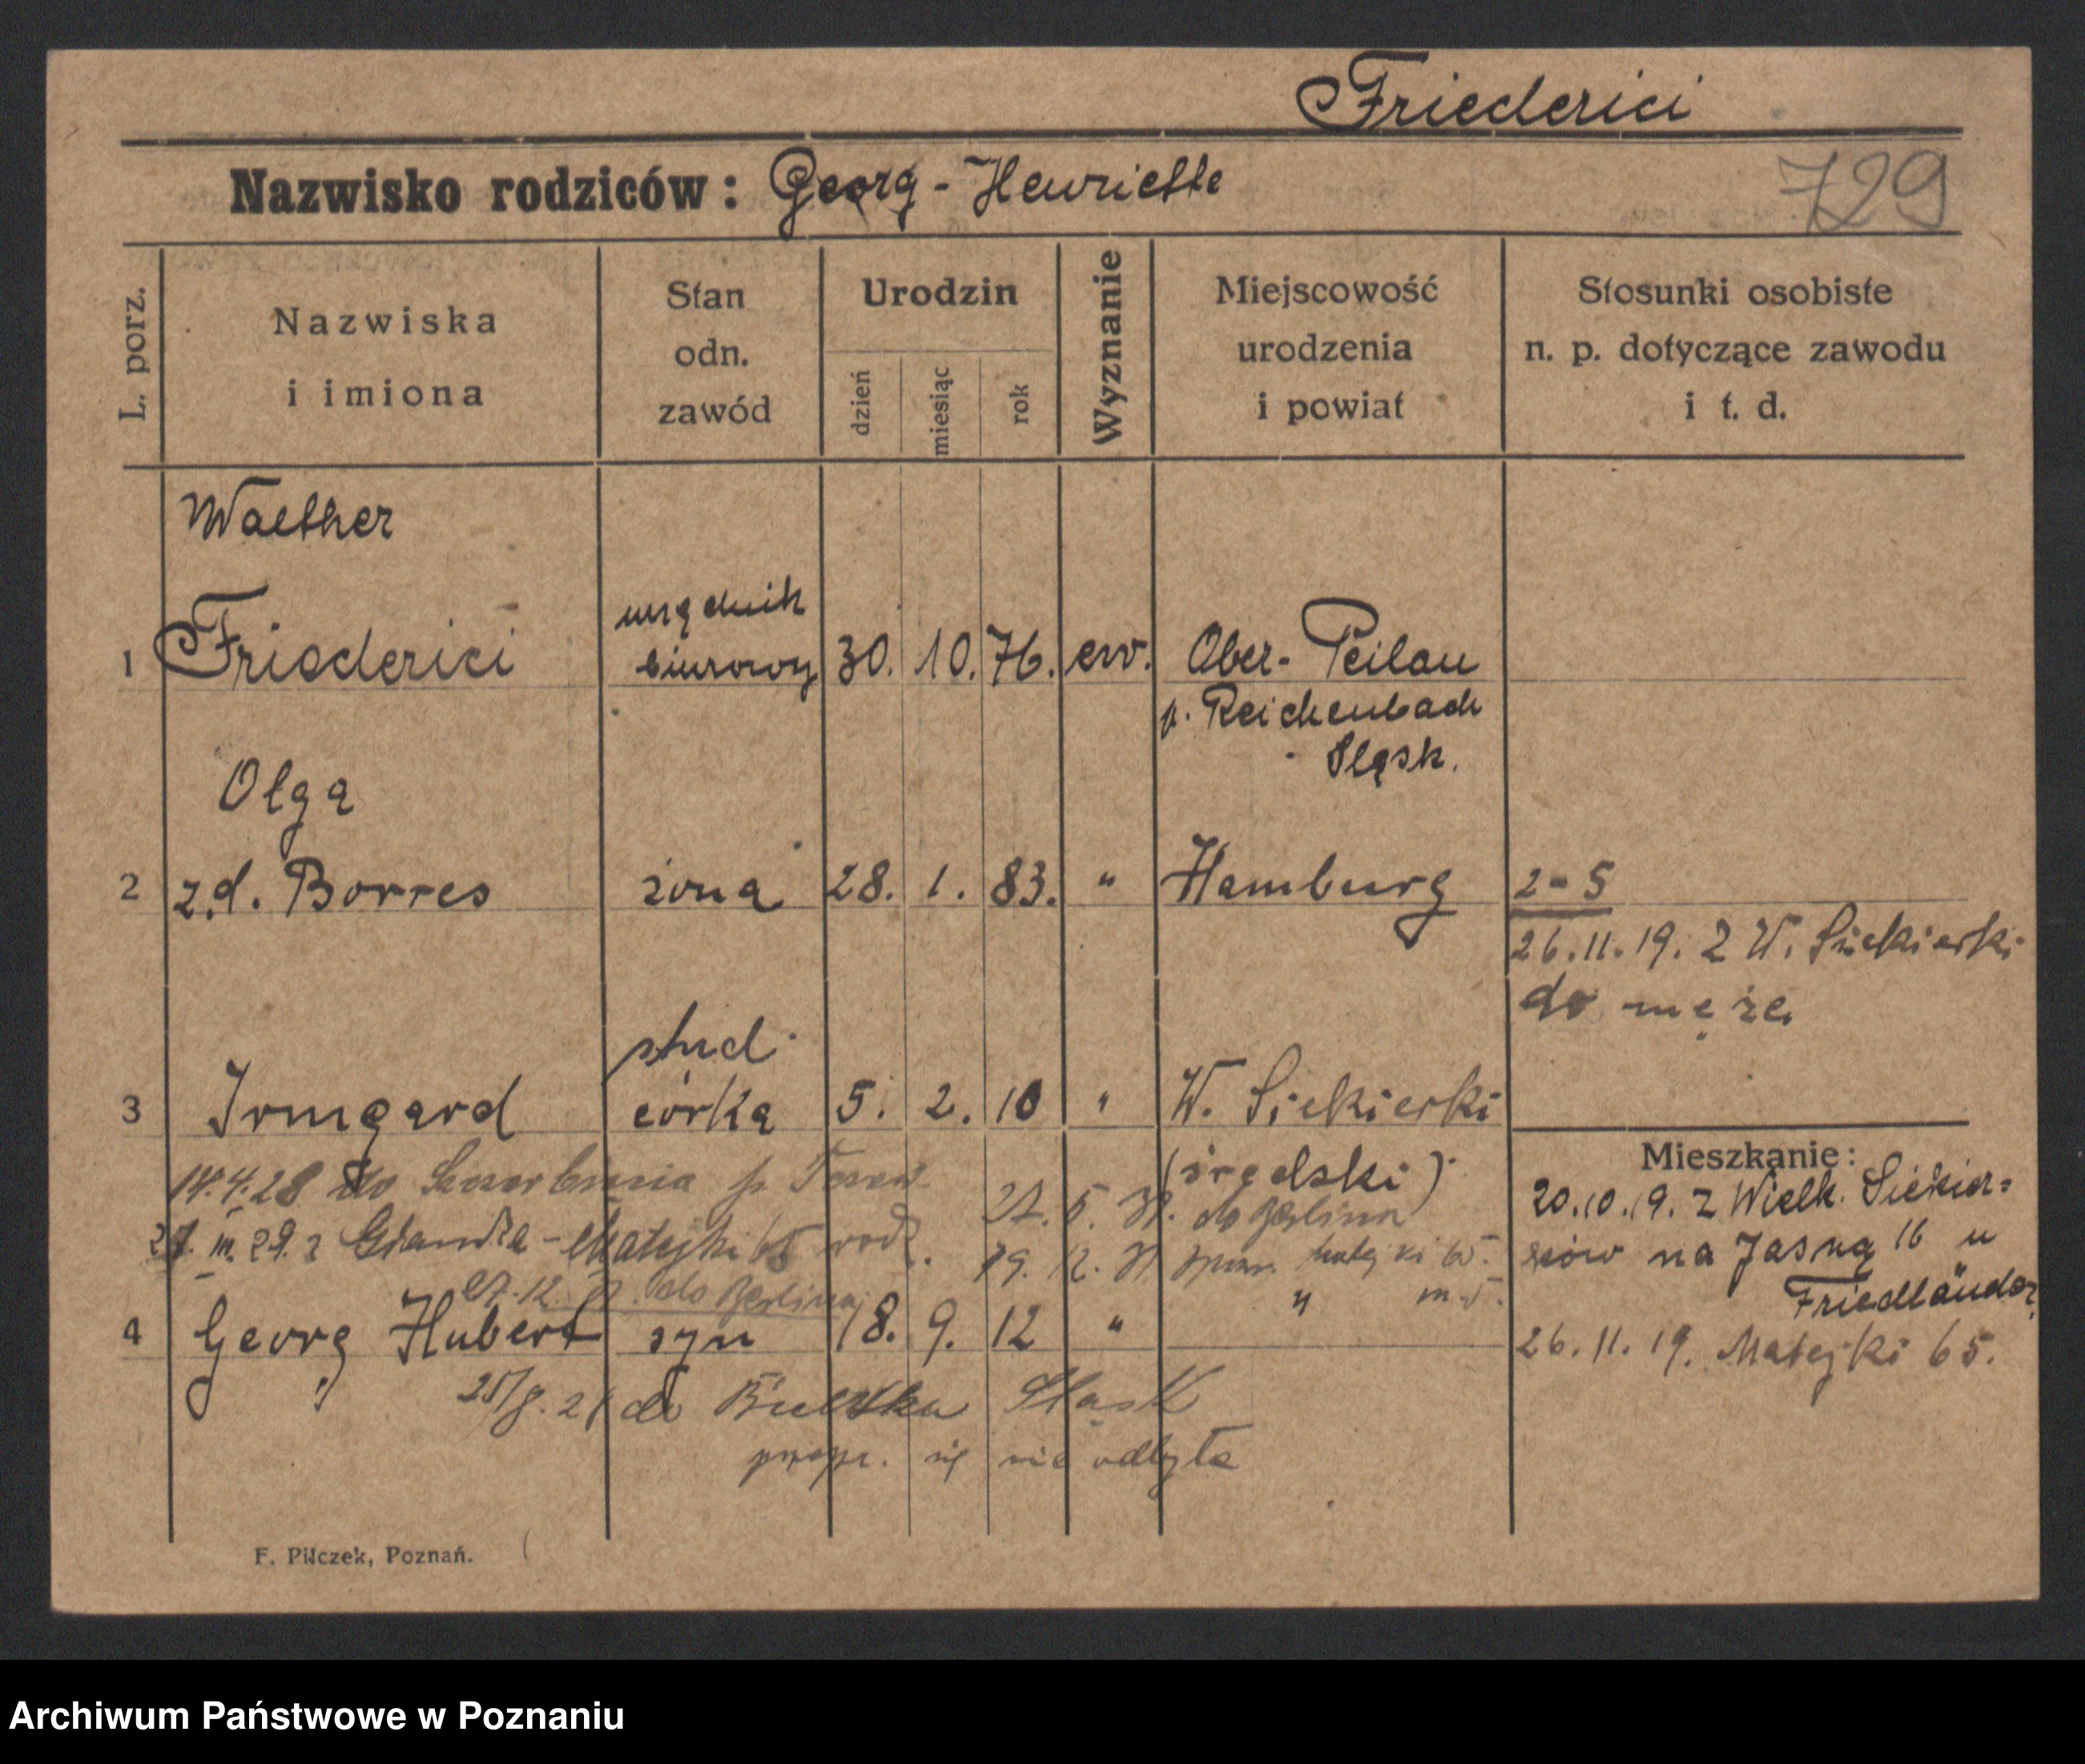 Friederici
Nazwisko rodziców: Georg - Henriette
729
L. porz.
Nazwiska
i imiona
Stan
odn.
zawód
Urodzin
dzień
miesiąc
rok
Wyznanie
Miejscowość
urodzenia
i powiat
Stosunki osobiste
n. p. dotyczące zawodu
i t. d.
Walther
1 Friederici urzędnik biurowy 30. 10. 76. ew. Ober-Peilau
p. Reichenbach
Śląsk.
Olga
2 z.d. Borres żona 28. 1. 83. " Hamburg
2-5
26.11.19. z W. Siekierki
do męża
stud.
3 Irmgard córka 5. 2. 10 " W. Siekierki
(średzki)
14.4.28 do p.
27. III. 29. z - Matejki 65 rodz.
27. 5. do Berlina
19. 12. Matejki 65.
m. 5.
27.12. do Berlina
4 Georg Hubert syn 18. 9. 12 " "
do Śląsk
się nie odbyła
Mieszkanie:
20.10.19. z Wielk. Siekier-
ków na Jasną 16 u
Friedländer
26.11.19. Matejki 65.
F. Pilczek, Poznań.
Archiwum Państwowe w Poznaniu